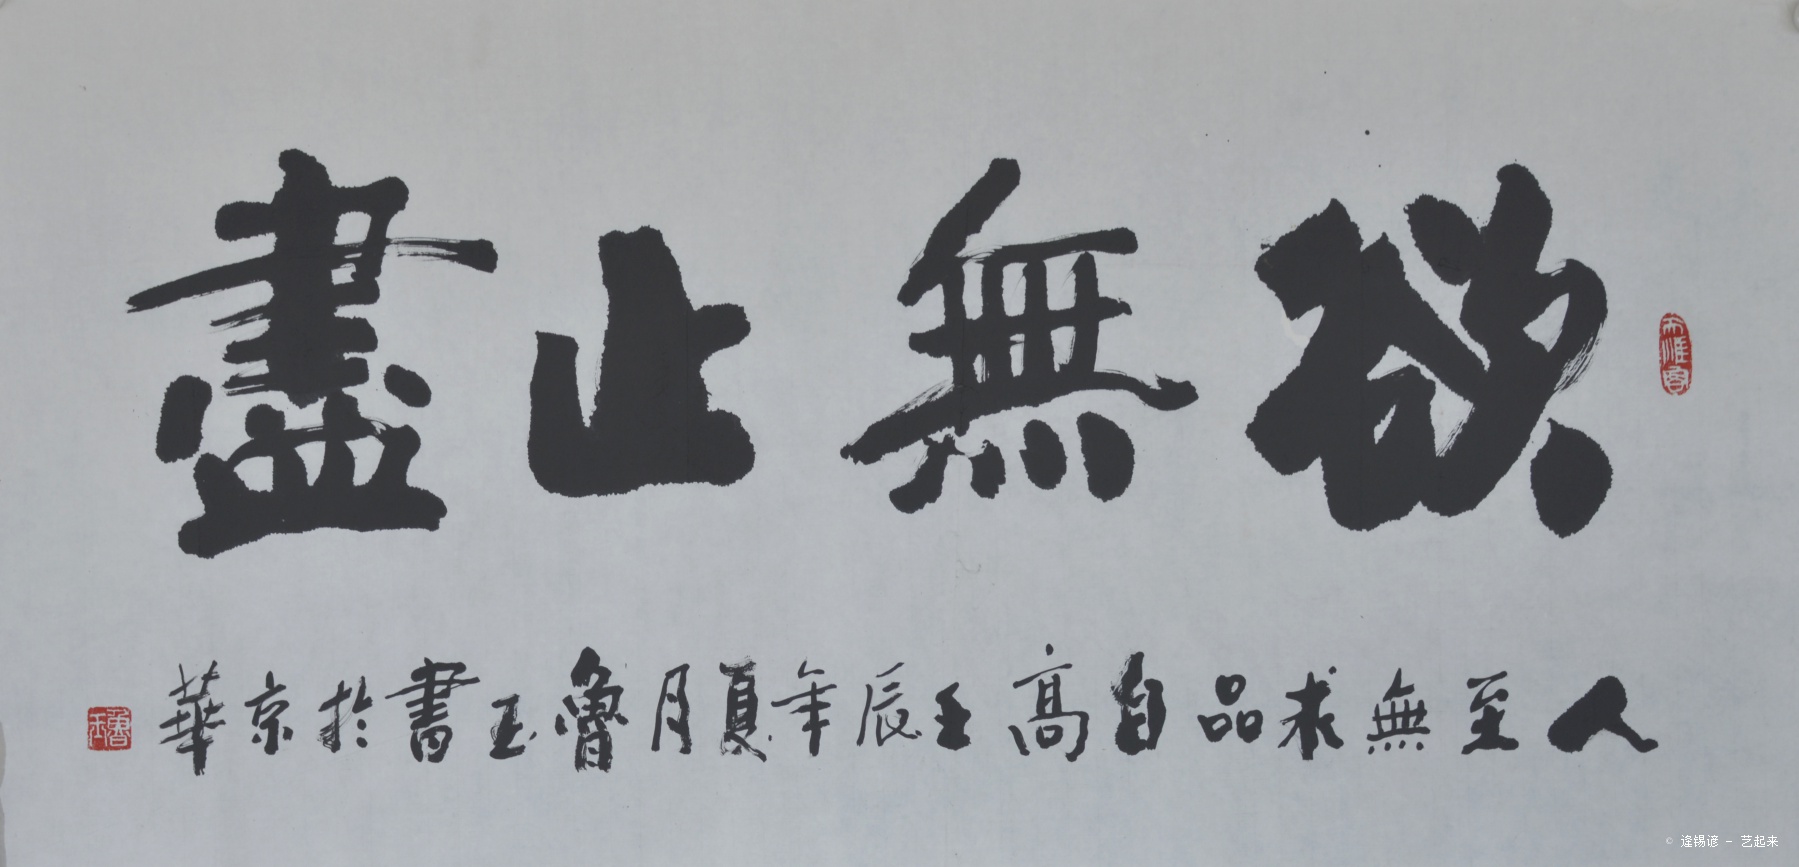 欲無止盡
人至無求品自高壬辰年夏月魯玉書於京華
魯玉
© 逄锡谚 - 艺起来